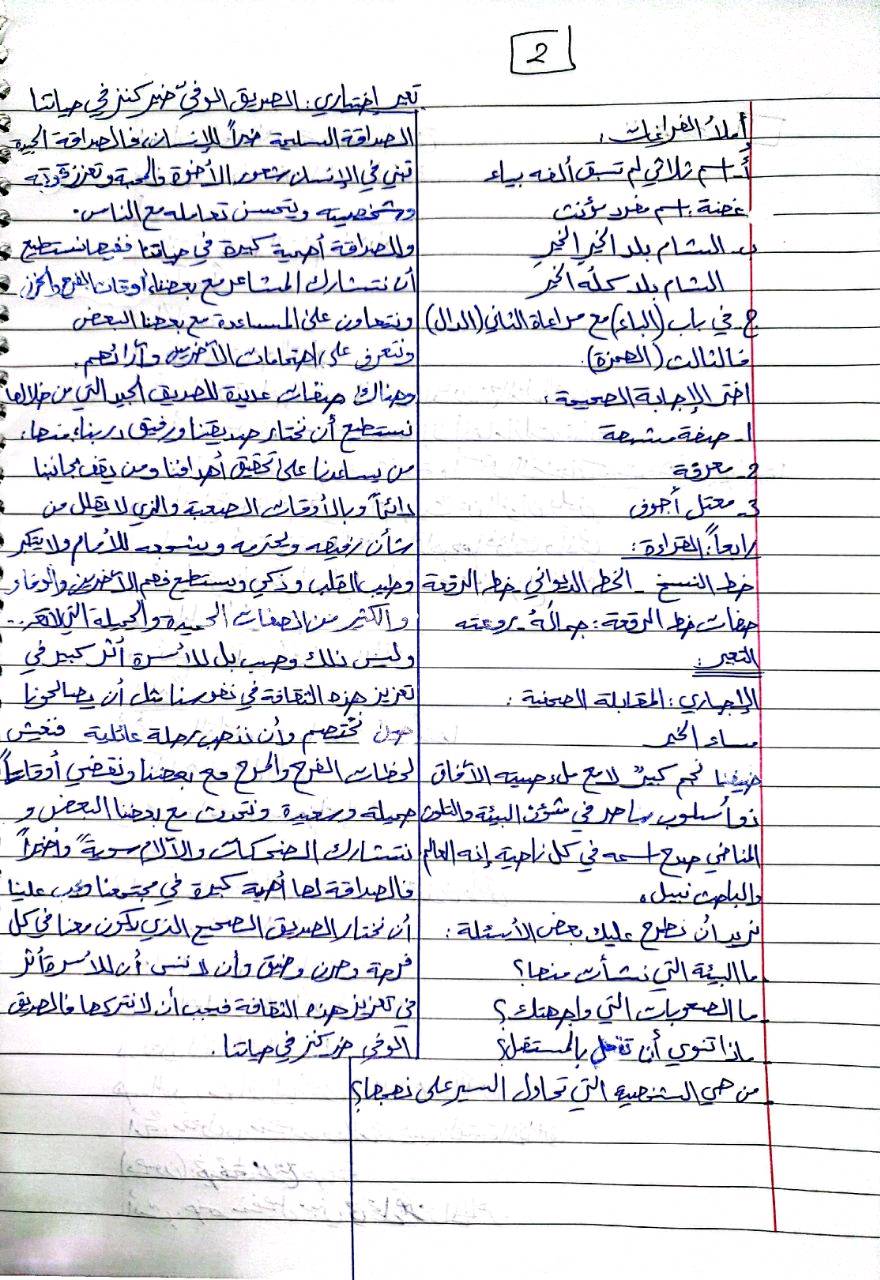 2
أملأ الفراغات:
أ- اسم ثلاثي لم تسبق ألفه بياء
غضنة: اسم مفرد مؤنث
ب- الشام بلد الخير الخير
الشام بلد كله الخير
ج- في باب (الباء) مع مراعاة الثاني (الدال)
فالثالث (الهمزة).
اختر الإجابة الصحيحة:
1- صفة مشبهة
2- معرفة
3- معتل أجوف
رابعاً: القراءة:
خط النسخ - الخط الديواني - خط الرقعة
صفات خط الرقعة: جماله - روعته
التعبير:
الإجباري: المقابلة الصحفية:
مساء الخير
ضيفنا نجم كبير لامع ملء صيته الآفاق
ذو أسلوب ساحر في شؤون البيئة والتلوث
المناخي صدح اسمه في كل ناحية إنه العالم
والباحث نبيل.
نريد أن نطرح عليك بعض الأسئلة:
ما البيئة التي نشأت منها؟
ما الصعوبات التي واجهتك؟
ماذا تنوي أن تفعل بالمستقبل؟
من هي الشخصية التي تحاول السير على نهجها؟
تعبير إختياري: الصديق الوفيّ خير كنز في حياتنا
الصداقة السليمة خيراً للإنسان، فالصداقة الجيدة
تبني في الإنسان شعور الأخوة والمحبة وتعزز قوته
وشخصيته ويتحسن تعامله مع الناس.
وللصداقة أهمية كبيرة في حياتنا ففيها نستطيع
أن نتشارك المشاعر مع بعضنا، أوقات الفرح والحزن
ونتعاون على المساعدة مع بعضنا البعض
ونتعرف على اهتمامات الآخرين وآرائهم.
وهناك صفات عديدة للصديق الجيد التي من خلالها
نستطيع أن نختار صديقنا ورفيق دربنا، منها:
من يساعدنا على تحقيق أهدافنا ومن يقف بجانبنا
دائماً وبالأوقات الصعبة والذي لا يقلل من
شأن رفيقه ويحترمه ويشجعه للأمام ولا يتكبر
وطيب القلب وذكي ويستطيع فهم الآخرين والوفاء
والكثير من الصفات الحميدة والجميلة التي لا تعد..
وليس ذلك وحسب بل للأسرة أثر كبير في
تعزيز هذه الثقافة في نفوسنا مثل أن يصالحونا
حين نختصم وأن نذهب رحلة عائلية فنعيش
لحظات الفرح والمرح مع بعضنا ونقضي أوقاتاً
جميلة وسعيدة ونتحدث مع بعضنا البعض و
نتشارك الضحكات والآلام سويةً وأخيراً
فالصداقة لها أهمية كبيرة في مجتمعنا ويجب علينا
أن نختار الصديق الصحيح الذي يكون معنا في كل
فرحة وحزن وضيق وأن لا ننسى أن للأسرة أثر
في تعزيز هذه الثقافة فيجب أن لا نتركها فالصديق
الوفي خير كنز في حياتنا.